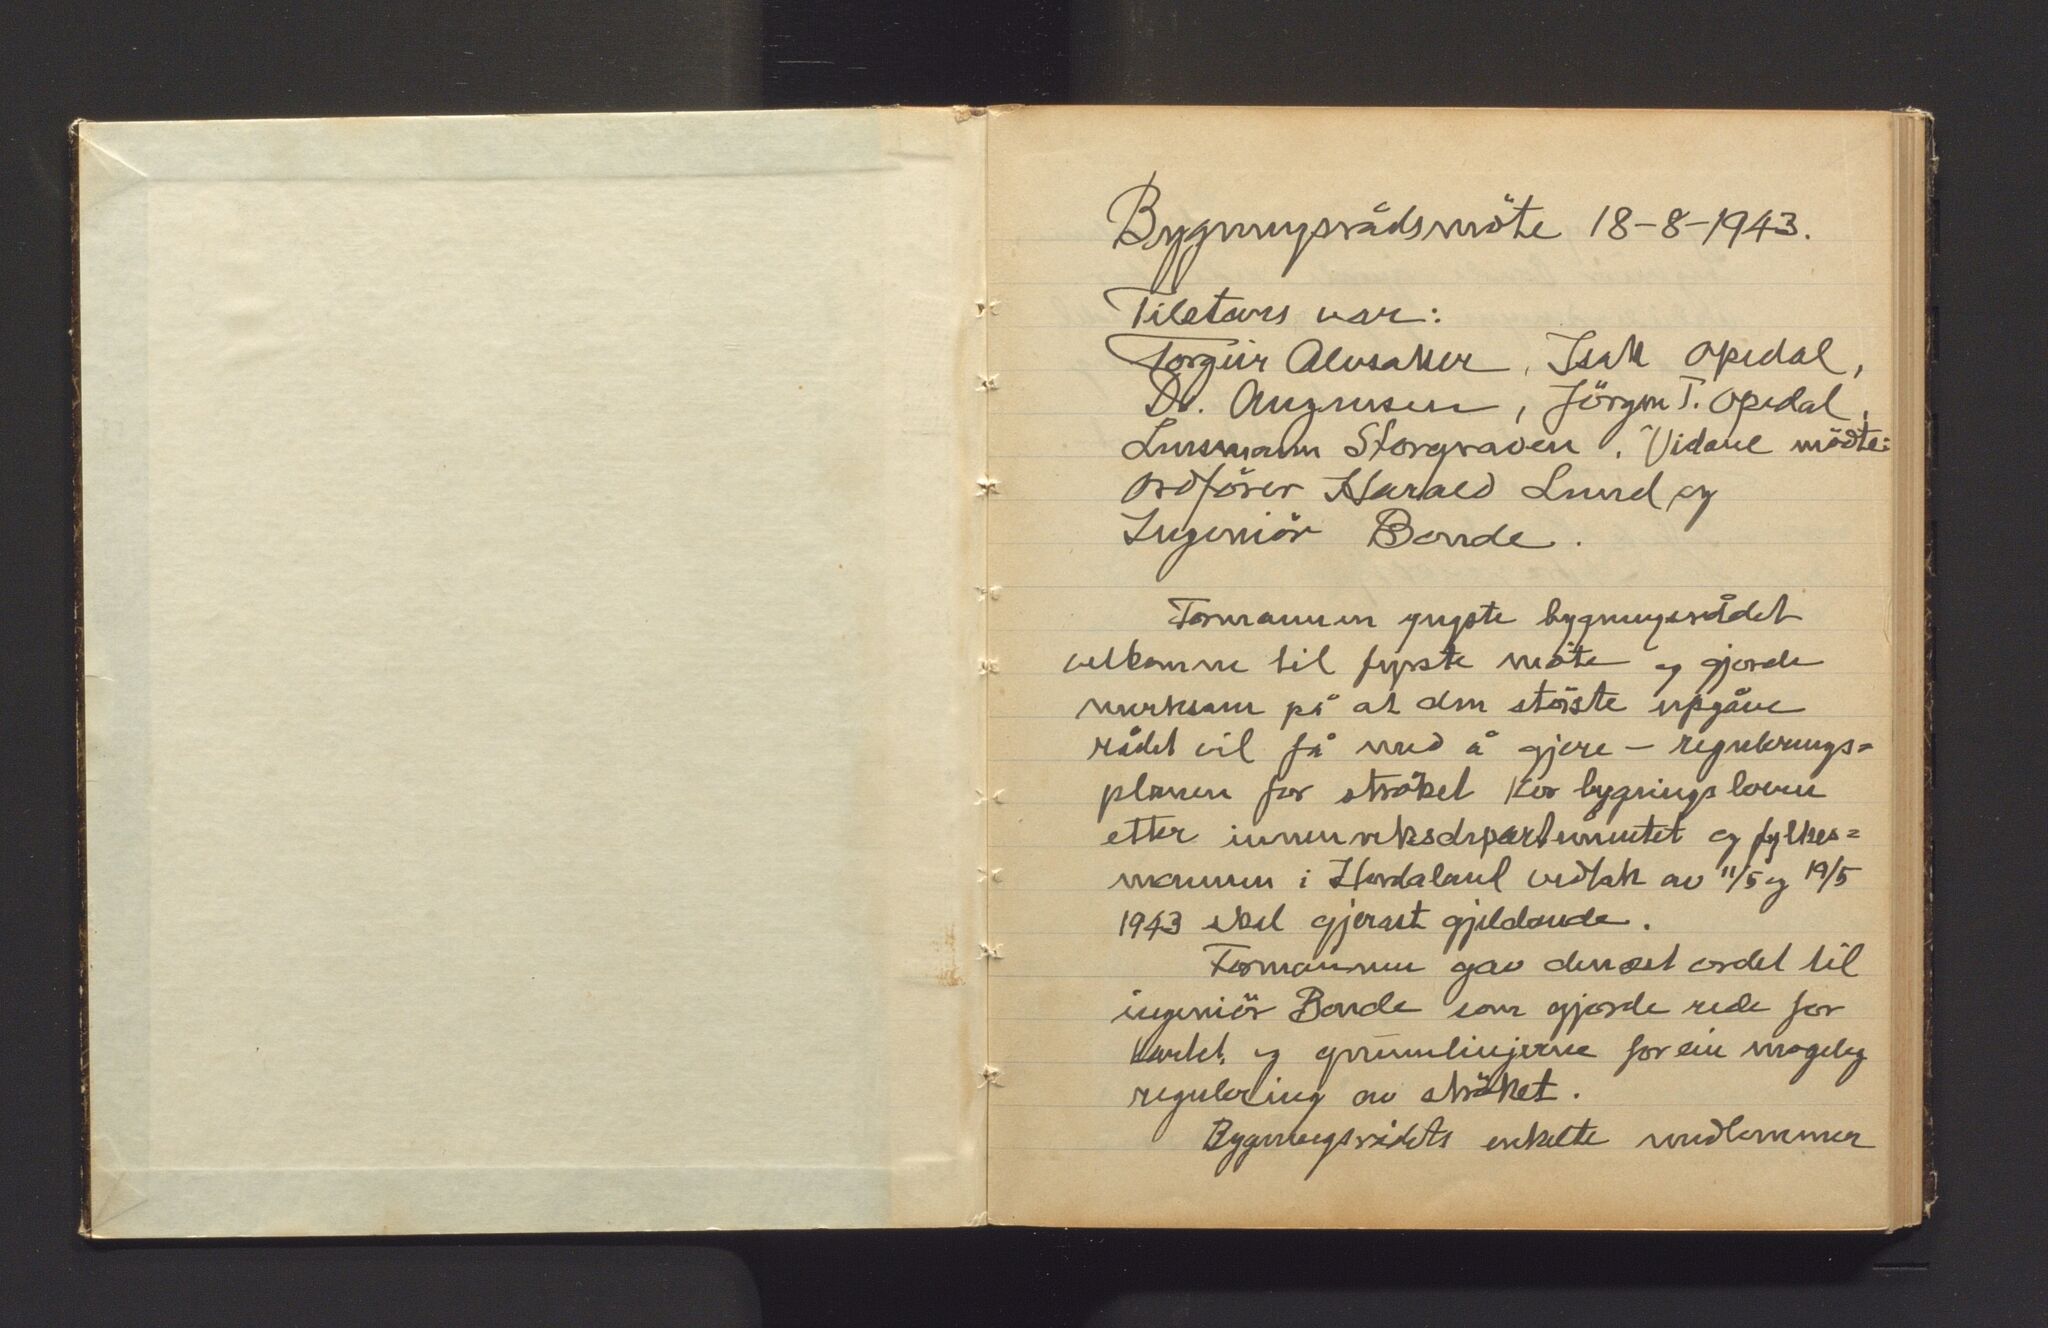 Bygningsrådsmöte 18-8-1943.
Tilstavs var:
Torgeir Alvsaker, Isak Opedal,
Dr. Magnusen, Jörgen T. Opedal,
Lensmann Storgraven. Vidare mödte:
Ordförer Harald Lund og
Ingeniör Bonde.
Formannen yngste bygningsrådet
velkomne til fyrste möte og gjorde
merksam på at den störste upgåve
rådet vil få med å gjere - regulerings=
planen for ströket kor bygningsloven
etter innenriksdepartementet og fylkes=
mannen i Hordaland vedtak av 11/5 og 19/5
1943 skal gjerast gjeldande.
Formannen gav dernæst ordet til
ingeniör Bonde som gjorde rede for
kartet og grunnlinjerne for ein mogeleg
regulering av ströket.
Bygningsrådets enkelte medlemmer